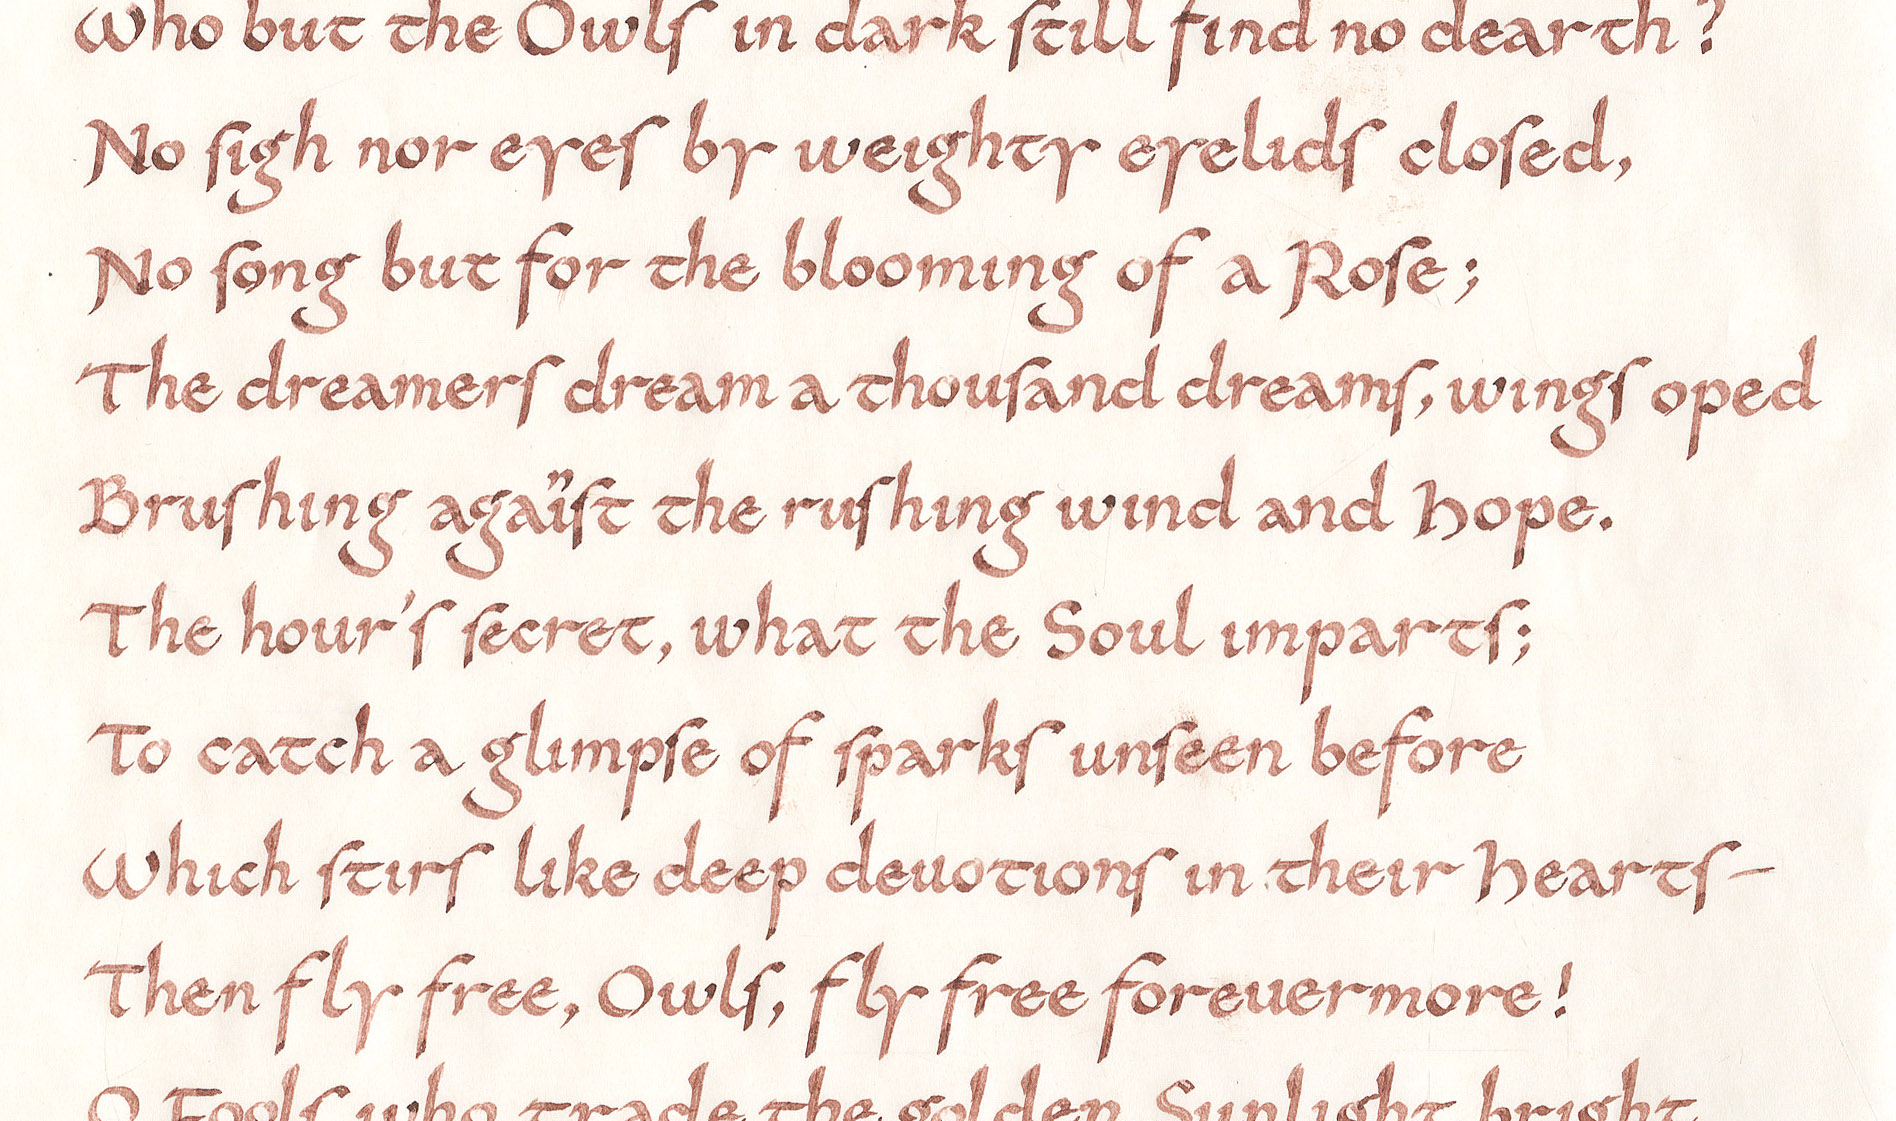 Who but the Owls in dark still find no dearth?
No sigh nor eyes by weighty eyelids closed,
No song but for the blooming of a Rose;
The dreamers dream a thousand dreams, wings oped
Brushing agaïst the rushing wind and hope.
The hour's secret, what the Soul imparts;
To catch a glimpse of sparks unseen before
Which stirs like deep deuotions in their hearts—
Then fly free, Owls, fly free foreuermore!
O Fools who trade the golden Sunlight bright